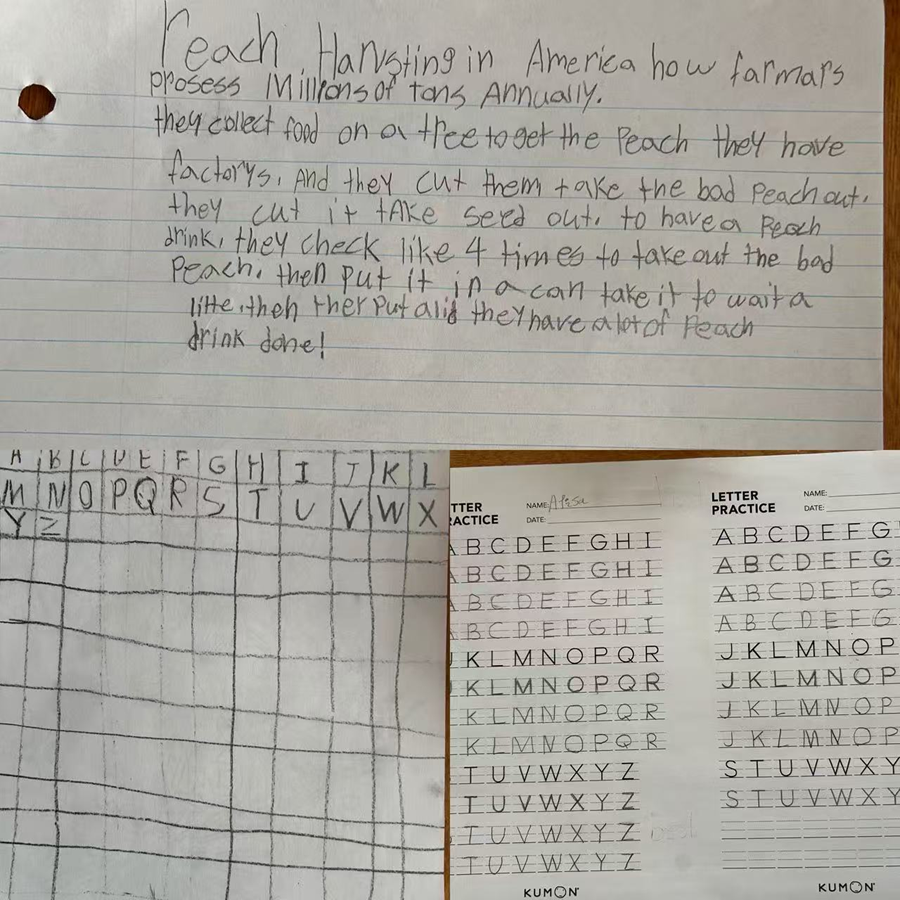 Peach Harvsting in America how farmars
prosess Millions of tons Annually.
they collect food on a tree to get the Peach they have
factorys. And they cut them take the bad Peach out.
they cut it tAke seed out. to have a Peach
drink, they check like 4 times to take out the bad
Peach. then put it in a can take it to wait a
litte. then ther put a lid they have a lot of Peach
drink done!
A B C D E F G H I J K L
M N O P Q R S T U V W X
Y Z
TTER
RACTICE
NAME:
DATE:
A B C D E F G H I
A B C D E F G H I
A B C D E F G H I
A B C D E F G H I
J K L M N O P Q R
J K L M N O P Q R
K L M N O P Q R
K L M N O P Q R
T U V W X Y Z
T U V W X Y Z
T U V W X Y Z
T U V W X Y Z
KUMON
LETTER
PRACTICE
NAME:
DATE:
A B C D E F G
A B C D E F G
A B C D E F G
A B C D E F G
J K L M N O P
J K L M N O P
J K L M N O P
J K L M N O P
S T U V W X Y
S T U V W X Y
KUMON